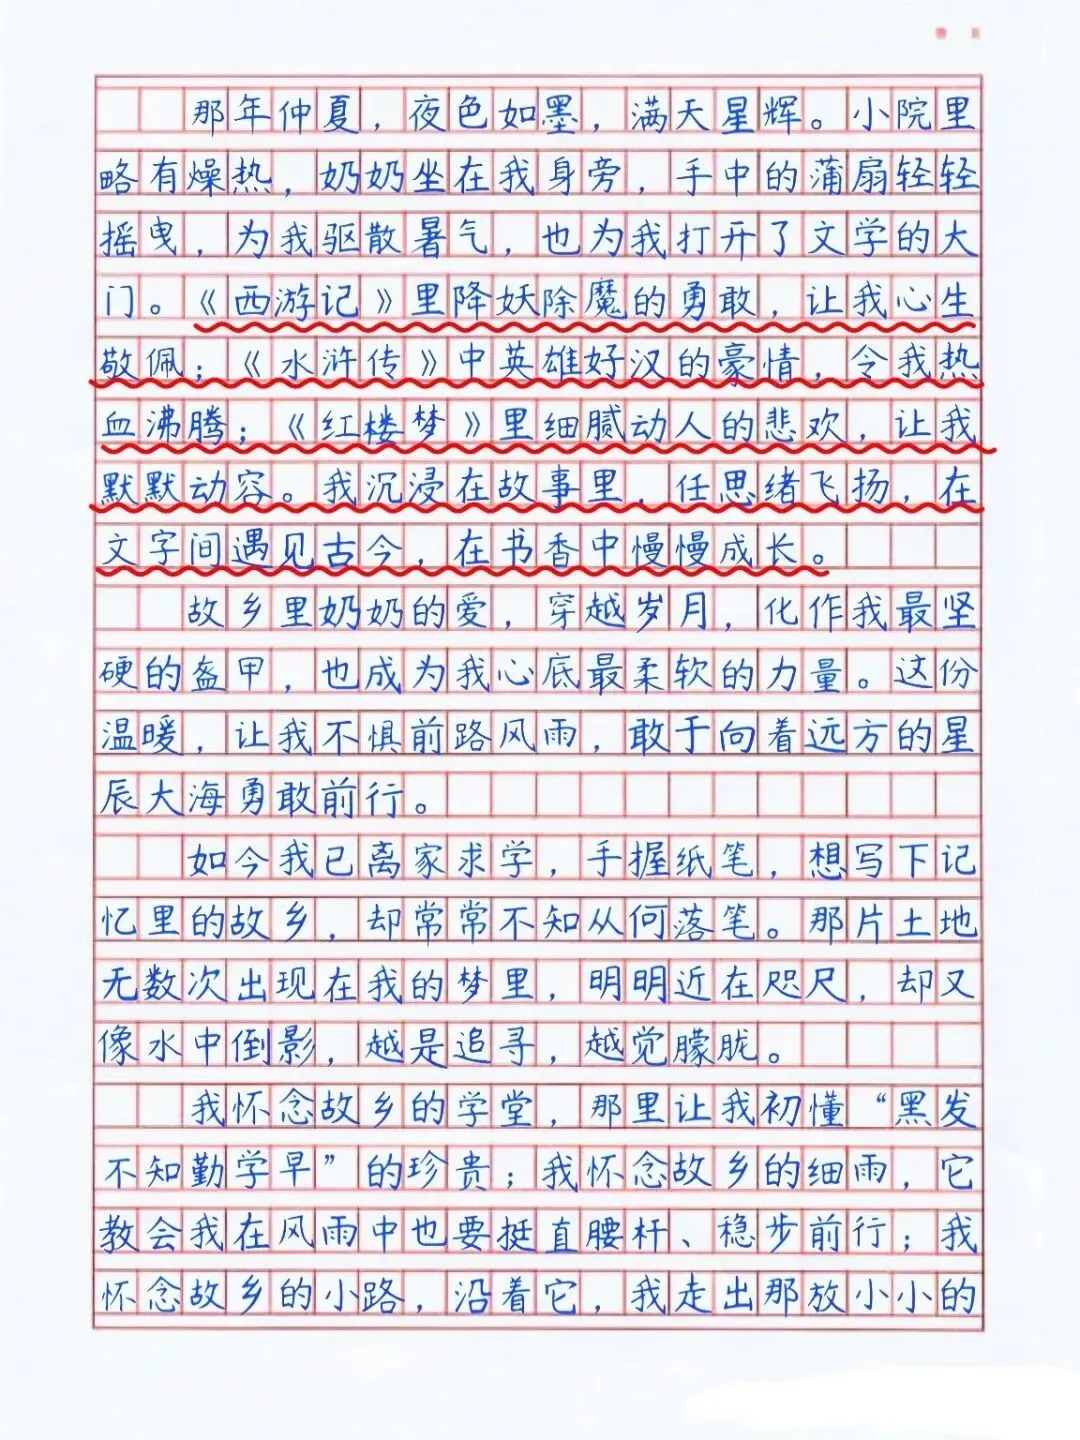 那年仲夏，夜色如墨，满天星辉。小院里
略有燥热，奶奶坐在我身旁，手中的蒲扇轻轻
摇曳，为我驱散暑气，也为我打开了文学的大
门。《西游记》里降妖除魔的勇敢，让我心生
敬佩；《水浒传》中英雄好汉的豪情，令我热
血沸腾；《红楼梦》里细腻动人的悲欢，让我
默默动容。我沉浸在故事里，任思绪飞扬，在
文字间遇见古今，在书香中慢慢成长。
故乡里奶奶的爱，穿越岁月，化作我最坚
硬的盔甲，也成为我心底最柔软的力量。这份
温暖，让我不惧前路风雨，敢于向着远方的星
辰大海勇敢前行。
如今我已离家求学，手握纸笔，想写下记
忆里的故乡，却常常不知从何落笔。那片土地
无数次出现在我的梦里，明明近在咫尺，却又
像水中倒影，越是追寻，越觉朦胧。
我怀念故乡的学堂，那里让我初懂“黑发
不知勤学早”的珍贵；我怀念故乡的细雨，它
教会我在风雨中也要挺直腰杆、稳步前行；我
怀念故乡的小路，沿着它，我走出那放小小的